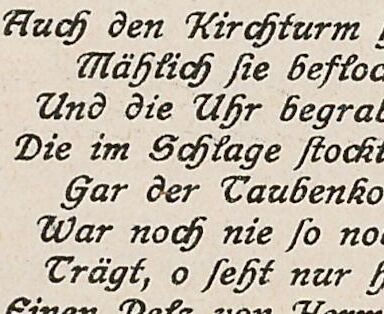 Auch den Kirchturm
Mählich sie befloc
Und die Uhr begrab
Die im Schlage stockt
Gar der Taubenko
War noch nie so no
Trägt, o seht nur h
Einen Pelz von Herm